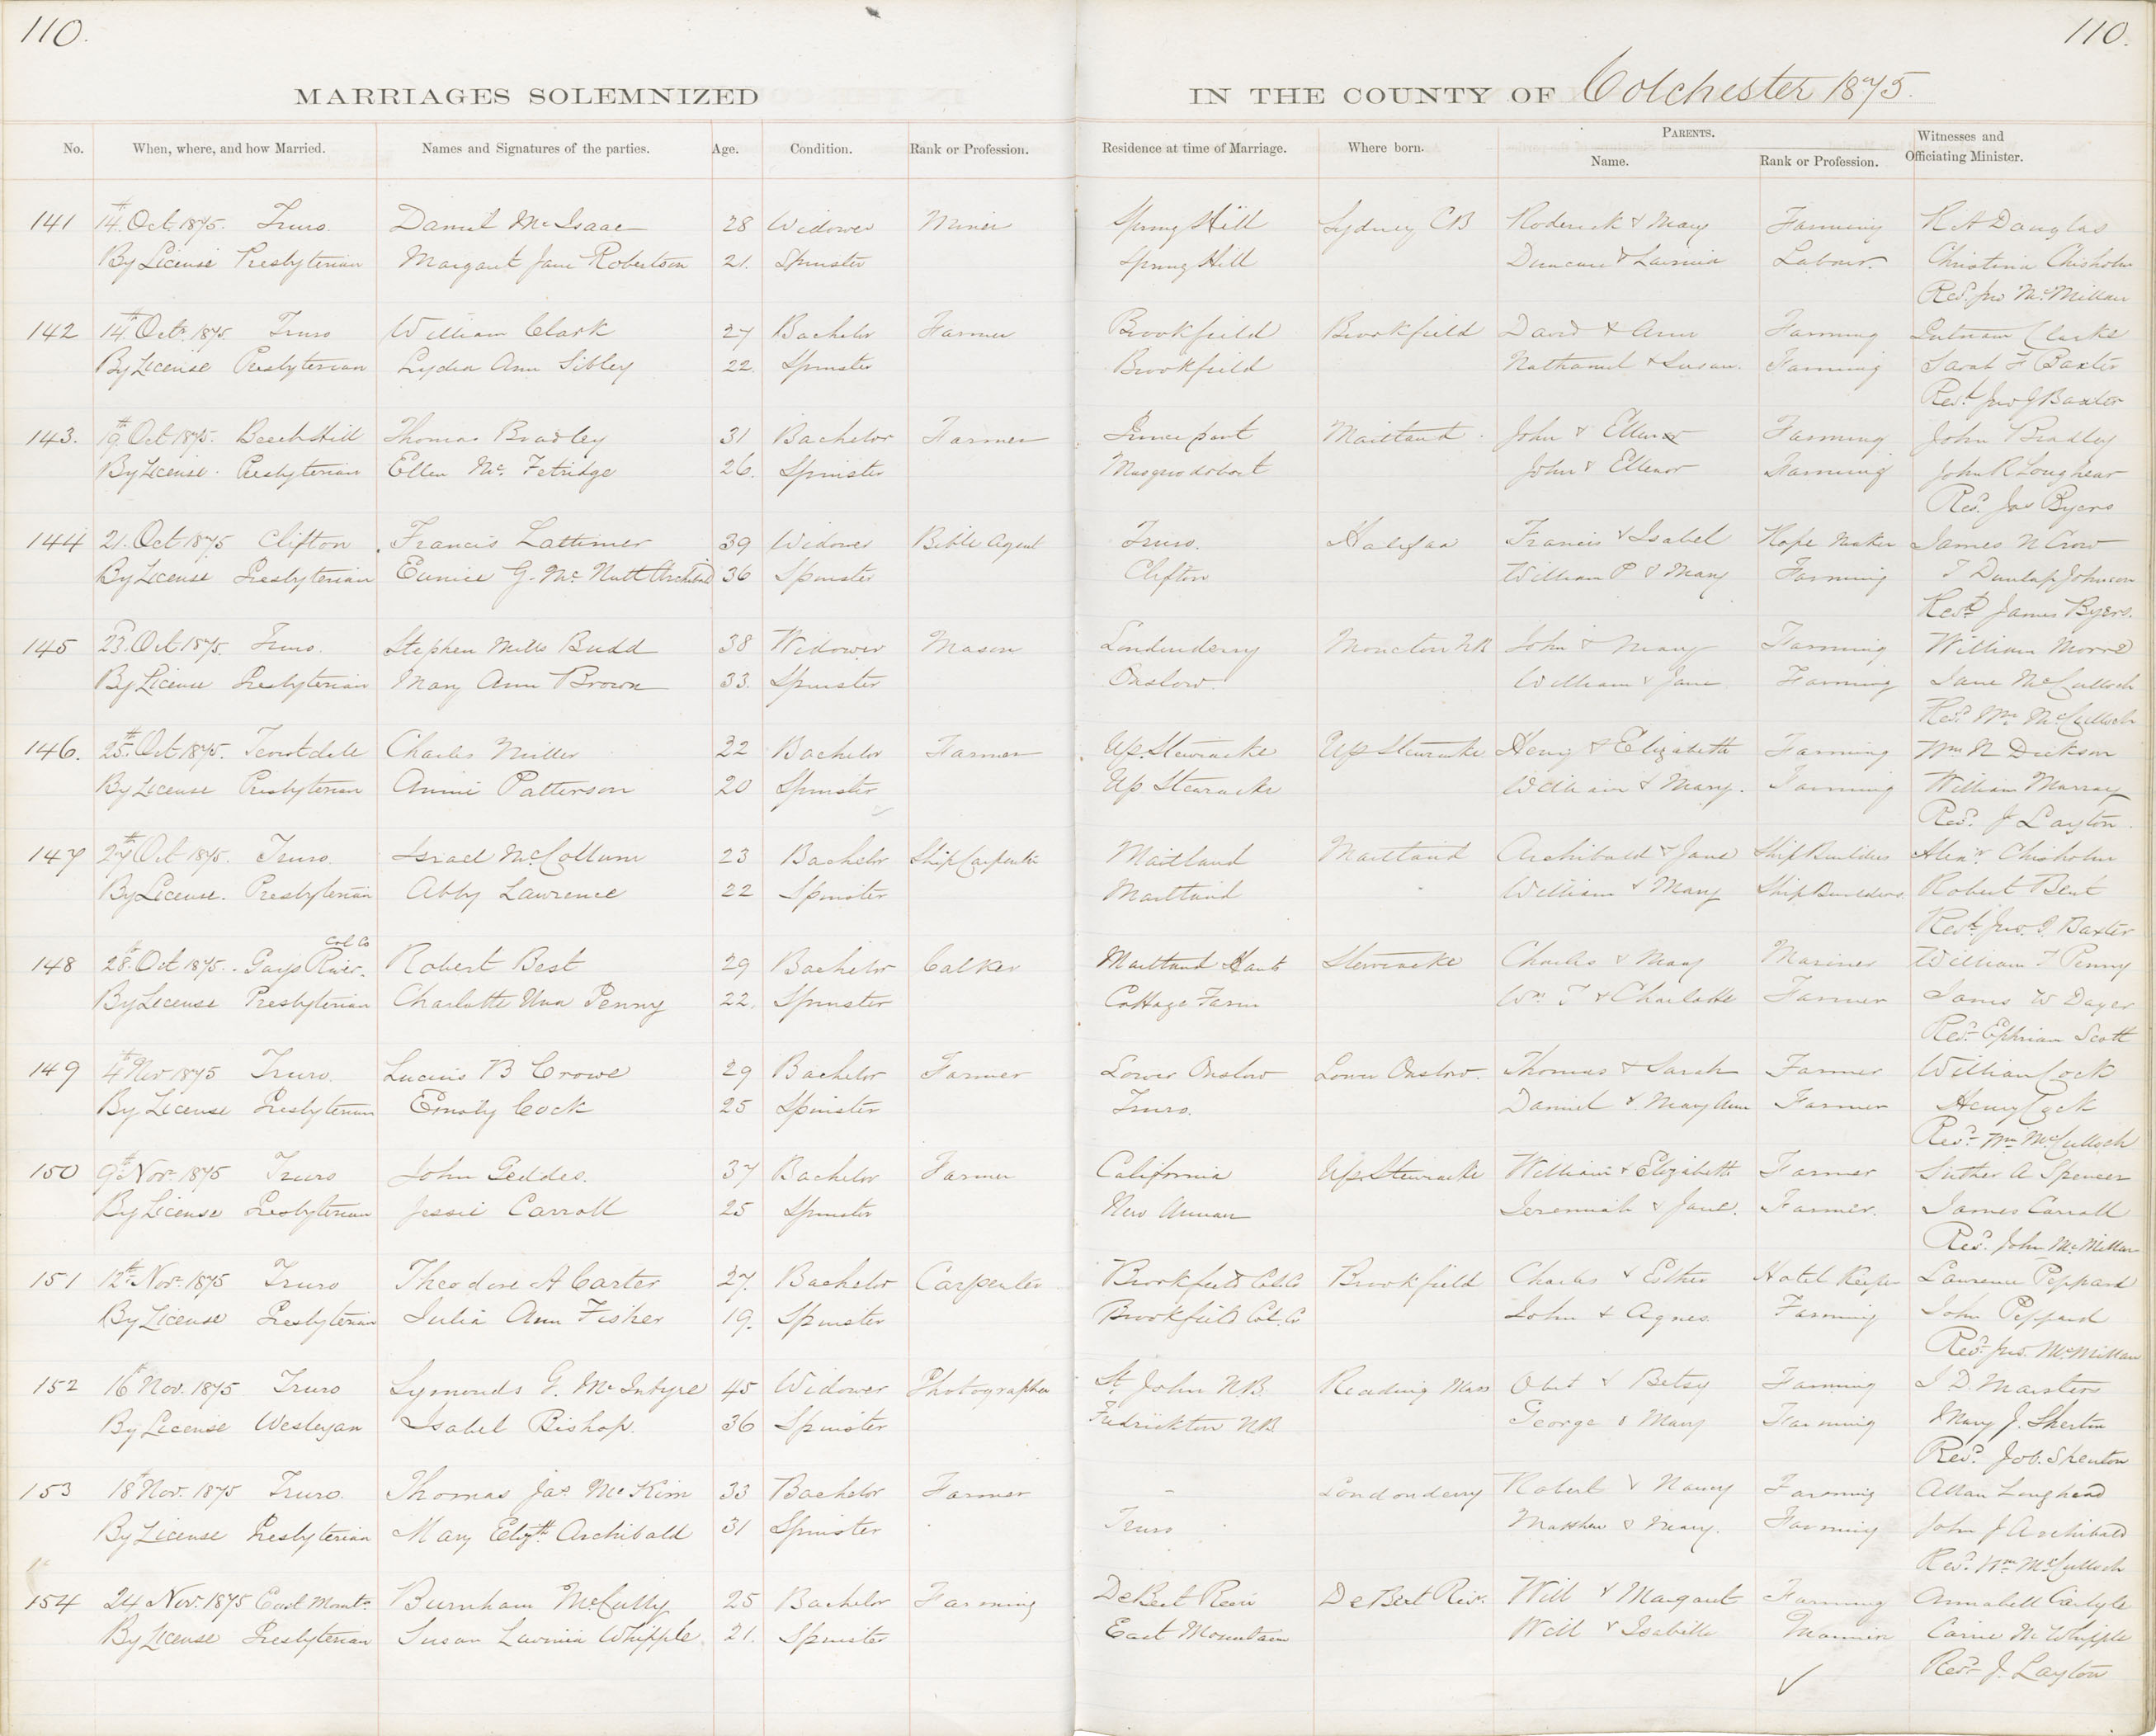 110.
110.
MARRIAGES SOLEMNIZED
IN THE COUNTY OF Colchester 1875.
No. When, where, and how Married. Names and Signatures of the parties. Age. Condition. Rank or Profession. Residence at time of Marriage. Where born. PARENTS. Name. Rank or Profession. Witnesses and Officiating Minister.
141 14th Oct 1875. Truro Daniel McIsaac 28 Widower Miner Spring Hill Sydney CB Roderick & Mary Farming R A Douglas
By License Presbyterian Margaret Jane Robertson 21. Spinster Spring Hill Duncan & Lavinia Labour. Christina Chisholm
Revd. Jno McMillan
142 14th Octr 1875. Truro William Clark 27 Bachelor Farmer Brookfield Brookfield David & Ann Farming Putnam Clarke
By License Presbyterian Lydia Ann Sibley 22. Spinster Brookfield Nathaniel & Susan. Farming Sarah F Baxter
Revd. Jno G Baxter
143. 19th Oct 1875. Beech Hill Thomas Bradley 31 Bachelor Farmer Maitland. John & Ellenor Farming John Bradley
By License. Presbyterian Ellen McFetridge 26. Spinster Musquodoboit John & Ellenor Farming John R Loughead
Revd. Jas Byers
144 21. Oct 1875 Clifton Francis Lattimer 39 Widower Bible Agent Truro. Halifax Francis & Isabel Rope Maker James N Crow
By License Presbyterian Eunice G. McNutt Archibald 36 Spinster Clifton William P & Mary Farming J Dunlap Johnson
Revd James Byers.
145 23d. Oct 1875. Truro. Stephen Mills Budd 38 Widower Mason Londonderry Moncton NB John & Mary Farming William
By License Presbyterian Mary Ann Brown 33. Spinster Onslow. William & Jane Farming Jane McCulloch
Revd. Wm McCulloch
146. 25th. Oct 1875. Charles Miller 22 Bachelor Farmer Up. Stewiacke Up Stewiacke Henry & Elizabeth Farming Wm N Dickson
By License Presbyterian Annie Patterson 20 Spinster Up Stewiacke William & Mary. Farming William Murray
Revd. J Layton.
147 27th Oct 1875. Truro. Israel McCollum 23 Bachelor Ship Carpenter Maitland Maitland Archibald & Jane Ship Builders Alexr. Chisholm
By License. Presbyterian Abby Lawrence 22 Spinster Maitland William & Mary Ship Builders. Robert Bent
Revd. Jno. G Baxter
Col Co
148 28th. Oct 1875. Gays River. Robert Best 29 Bachelor Calker Maitland Hants Stewiacke Charles & Mary Mariner William F Penny
By License Presbyterian Charlotte Una Penny 22. Spinster Cottage Farm Wm T & Charlotte Farmer James W
Revd. Ephriam Scott
149 4th Nov 1875 Truro. Lucius B Crowe 29 Bachelor Farmer Lower Onslow Lower Onslow. Thomas & Sarah Farmer William Cock
By License Presbyterian Emily Cock 25 Spinster Truro. Daniel & Mary Ann Farmer Henry Cock
Revd. Wm McCulloch
150 9th. Nov 1875 Truro John Geddes. 37 Bachelor Farmer California Up. Stewiacke William & Elizabeth Farmer Luther A Spencer
By License Presbyterian Jessie Carroll 25 Spinster New Annan Jeremiah & Jane. Farmer. James Carroll
Revd. John McMillan
151 12th. Novr. 1875 Truro Theodore A Carter 27. Bachelor Carpenter Brookfield Col. Co Brookfield Charles & Esther Hotel Keeper Lawrence Peppard
By License Presbyterian Julia Ann Fisher 19. Spinster Brookfield Col. Co John & Agnes. Farming John Peppard
Revd. Jno. McMillan
152 16th Nov. 1875 Truro Symonds G. McIntyre 45 Widower Photographer St. John NB. Reading Mass & Betsy Farming J D. Marsters
By License Wesleyan Isabel Bishop. 36 Spinster Fredrickton NB. George & Mary Farming Mary J.
Revd. Job. Shenton
153 18th Nov. 1875 Truro. Thomas Jas. McKim 33 Bachelor Farmer - Londonderry Robert & Nancy Farming Allan Loughead
By License Presbyterian Mary Elizth. Archibald 31 Spinster Truro Matthew & Mary. Farming John J Archibald
Revd. Wm McCulloch
154 24 Nov. 1875 East Mount. Burnham McCully 25 Bachelor Farming DeBert River DeBert Riv. Will & Margaret Farming Annabell Carlyle
By License Presbyterian Susan Lavinia Whipple 21. Spinster East Mountain Will & Isabella Carrie M Whipple
Revd. J. Layton